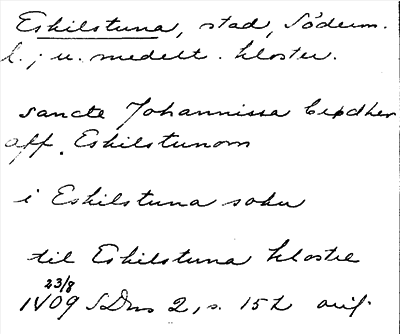 Eskilstuna, stad, Söderm.
l.; u. medelt. kloster.
sancte Johannissa
aff Eskilstunom
i Eskilstuna sokn
til Eskilstuna kloste
23/8
1409 SDns 2, s. 152 orig.